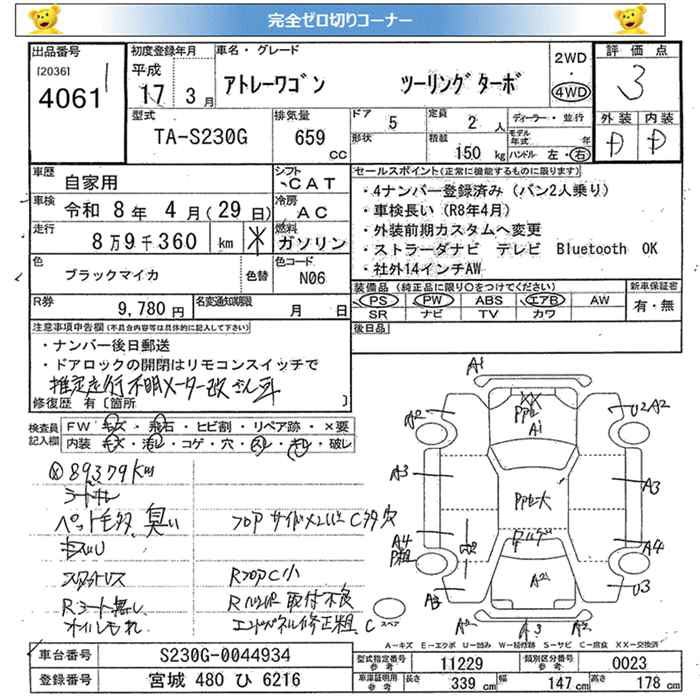 完全ゼロ切りコーナー
出品番号
[2036]
4061
初度登録年月
平成
17 3月
車名・グレード
アトレーワゴン ツーリングターボ
2WD
・
4WD
評価点
3
外装 内装
D D
型式
TA-S230G
排気量
659
CC
ドア
5
定員
2 人
形状
積載
150 kg
ディーラー・並行
モデル年式 年
ハンドル 左・右
車歴
自家用
シフト
CAT
車検 令和 8年 4月(29日)
冷房
AC
走行
8万9千360 km
燃料
ガソリン
色
ブラックマイカ
色替
色コード
N06
R券
9,780円
名変通知期限
月 日
セールスポイント(正常に機能するものに限ります)
・4ナンバー登録済み(バン2人乗り)
・車検長い(R8年4月)
・外装前期カスタムへ変更
・ストラーダナビ テレビ Bluetooth OK
・社外14インチAW
装備品(純正品に限り○をつけてください)
PS PW ABS エアB AW
SR ナビ TV カワ
新車保証書
有・無
後日品
注意事項申告欄(不具合内容等は具体的に記入して下さい)
・ナンバー後日郵送
・ドアロックの開閉はリモコンスイッチで
推定走行不明メーター改ざん車
修復歴 有〔箇所 〕
検査員記入欄
FW キズ・飛石・ヒビ割・リペア跡・×要
内装 キズ・汚れ・コゲ・穴・スレ・キレ・破レ
89379Km
シートキレ
ペット毛多 臭い
フロアC小
Rシート無し
R 取付不良
オイルもれ
エンドパネル修正粗 C
スペア
A1
A2
A1
U2 A2
A3
A3
A4
A4
A2
A3
A2
A3
A2
U3
A-キズ E-エクボ U-凹み W-補修跡 S-サビ C-腐食 XX-交換済
車台番号
S230G-0044934
登録番号
宮城 480 ひ 6216
型式指定番号
参考
11229
類別区分番号
参考
0023
車庫証明用
参考
長さ
339 cm
幅
147 cm
高さ
178 cm